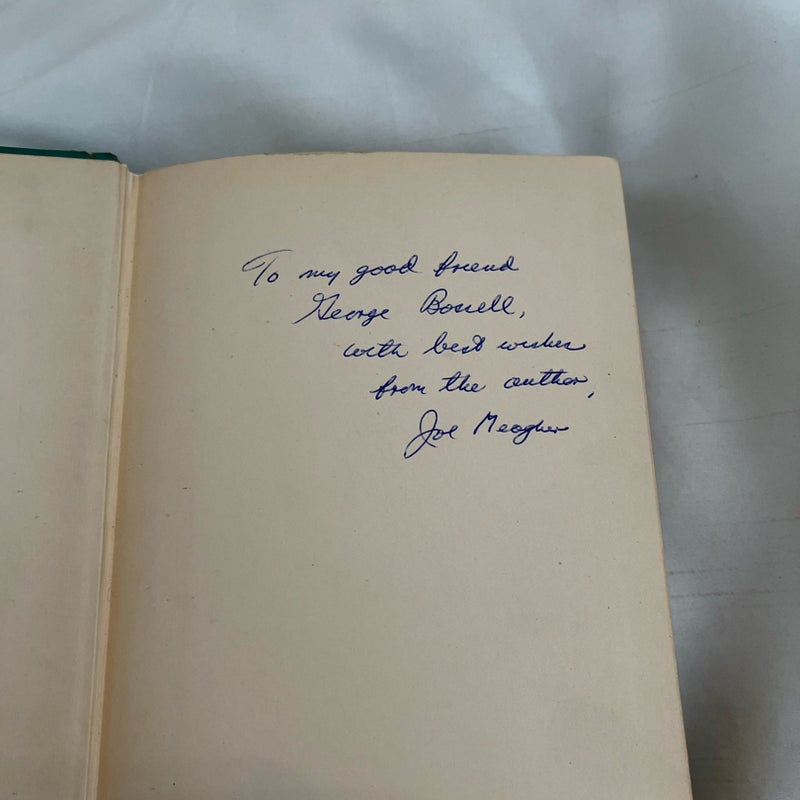 To my good friend
George Bonell,
with best wishes
from the author,
Joe Meagher